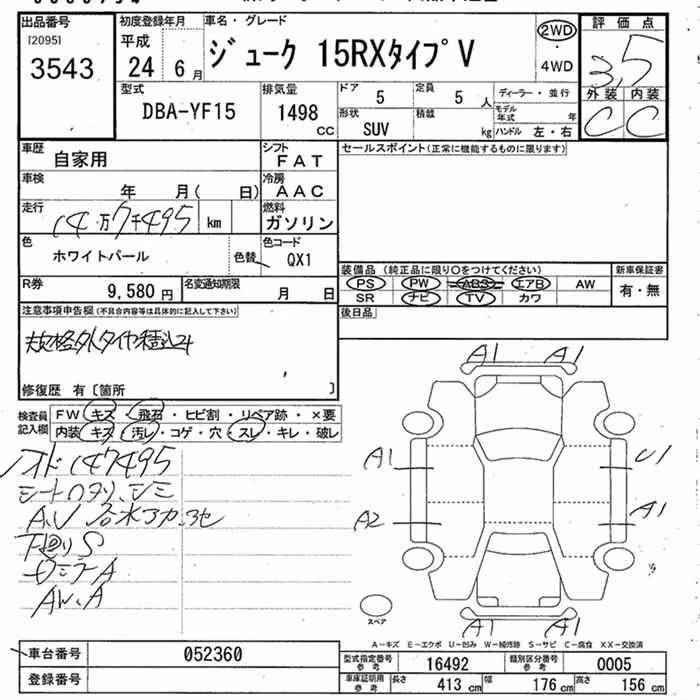 出品番号
[2095]
3543
初度登録年月
平成
24 6月
車名・グレード
ジューク 15RXタイプV
2WD
4WD
評価点
3.5
外装 内装
C C
型式
DBA-YF15
排気量
1498
CC
ドア
5
定員
5 人
形状
SUV
積載
kg
ディーラー・並行
モデル年式 年
ハンドル 左・右
車歴
自家用
シフト
FAT
車検
年 月( 日)
冷房
AAC
走行
14万7千495 km
燃料
ガソリン
色
ホワイトパール
色替
色コード
QX1
R券
9,580円
名変通知期限
月 日
セールスポイント(正常に機能するものに限ります)
装備品(純正品に限り○をつけてください)
新車保証書
PS PW ABS エアB AW
有・無
SR ナビ TV カワ
後日品
注意事項申告欄(不具合内容等は具体的に記入して下さい)
規格外タイヤ積込み
修復歴 有〔箇所 〕
検査員記入欄
FW キズ・飛石・ヒビ割・リペア跡・×要
内装 キズ・汚レ・コゲ・穴・スレ・キレ・破レ
メオド 147495
シートヘタリ、シミ
下回りS
AW.A
A1 A1
A1 U1
A2 A1
A1 A1
スペア
A-キズ E-エクボ U-凹み W-補修跡 S-サビ C-腐食 XX-交換済
車台番号
052360
登録番号
型式指定番号参考
16492
類別区分番号参考
0005
車庫証明用参考
長さ 413 cm
幅 176 cm
高さ 156 cm